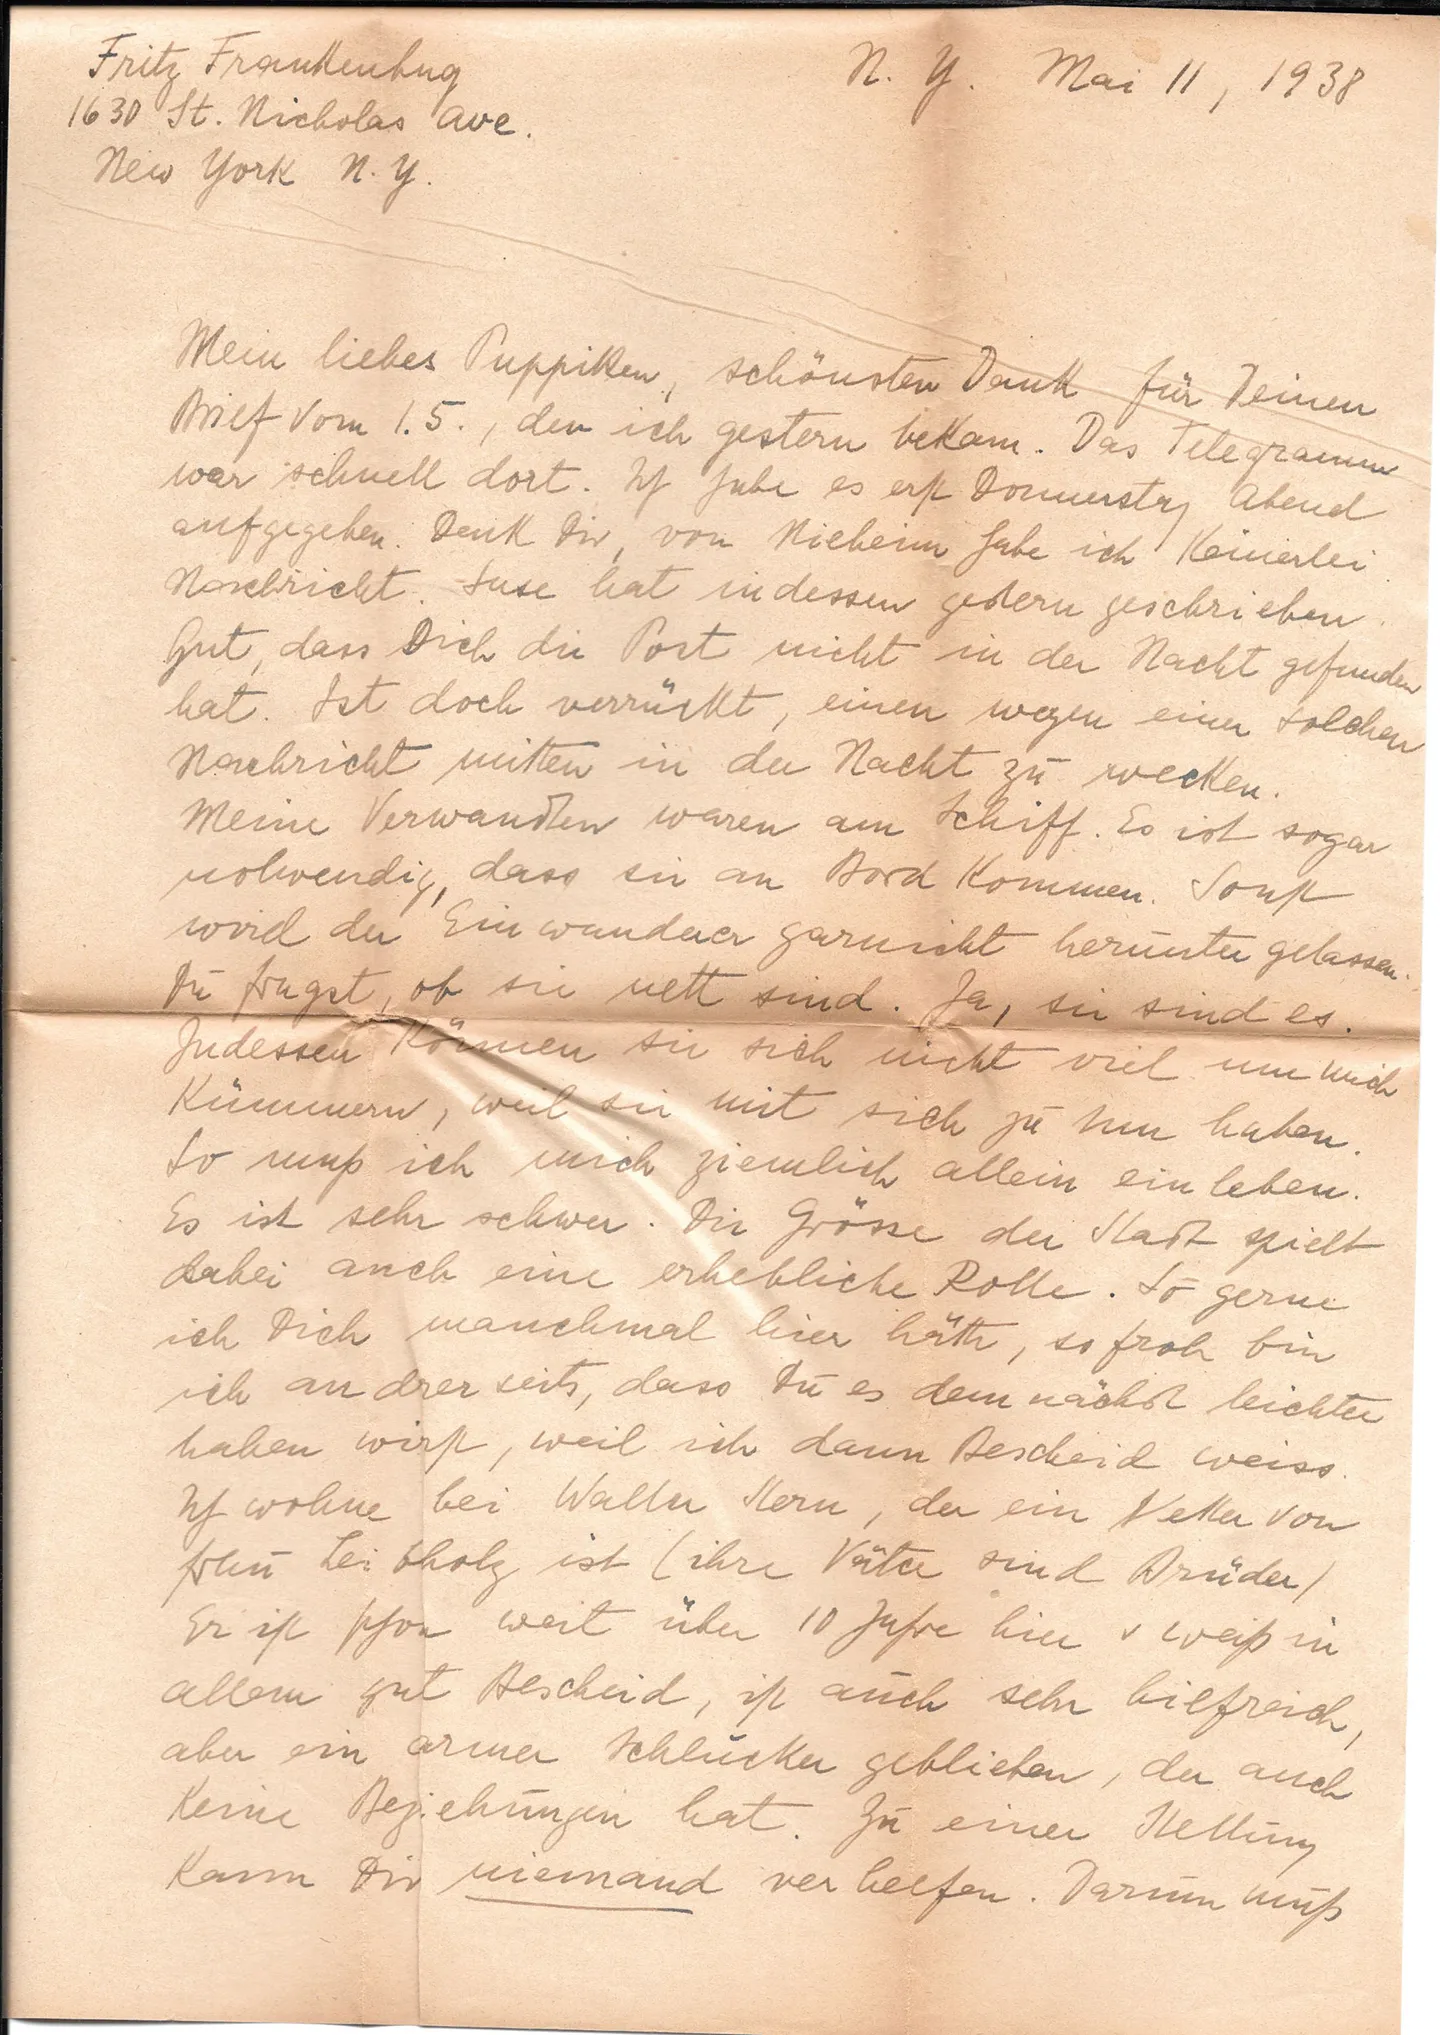 Fritz Frankenbug
1630 St. Nicholas Ave.
New York N. Y.
N. Y. Mai 11, 1938
Mein liebes Puppiken, schönsten Dank für Deinen
Brief vom 1.5., den ich gestern bekam. Das Telegramm
war schnell dort. Ich habe es erst Donnerstag Abend
aufgegeben. Denk Dir, von Nieheim habe ich keinerlei
Nachricht. Suse hat indessen gestern geschrieben.
Gut, dass Dich die Post nicht in der Nacht gefunden
hat. Ist doch verrückt, einen wegen einer solchen
Nachricht mitten in der Nacht zu wecken.
Meine Verwandten waren am Schiff. Es ist sogar
notwendig, dass sie an Bord kommen. Sonst
wird der Einwanderer garnicht herunter gelassen.
Du frugst, ob sie nett sind. Ja, sie sind es.
Indessen können sie sich nicht viel um mich
kümmern, weil sie mit sich zu tun haben.
So muß ich mich ziemlich allein einleben.
Es ist sehr schwer. Die Grösse der Stadt spielt
dabei auch eine erhebliche Rolle. So gerne
ich Dich manchmal hier hätte, so froh bin
ich andrerseits, dass Du es demnächst leichter
haben wirst, weil ich dann Bescheid weiss.
Ich wohne bei Walter Stern, der ein Vetter von
Frau Leibholz ist (ihre Väter sind Brüder)
Er ist schon weit über 10 Jahre hier u weiß in
allem gut Bescheid, ist auch sehr hilfreich,
aber ein armer Schlucker geblieben, der auch
keine Beziehungen hat. Zu einer Stellung
kann Dir niemand verhelfen. Darum muß